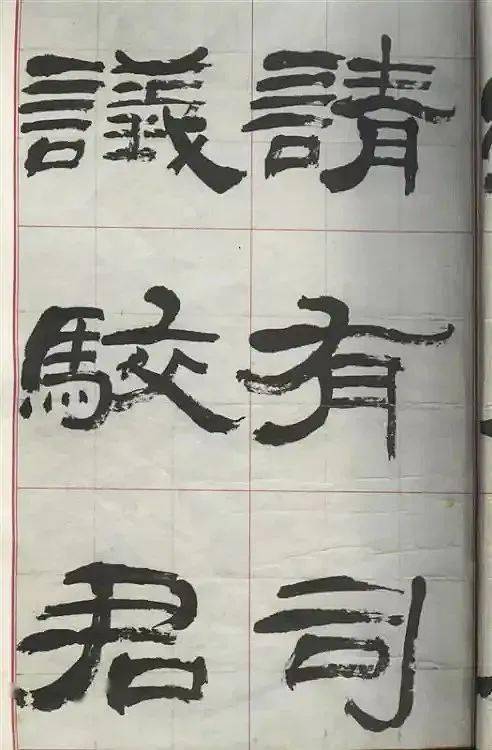 請有司
議駮君